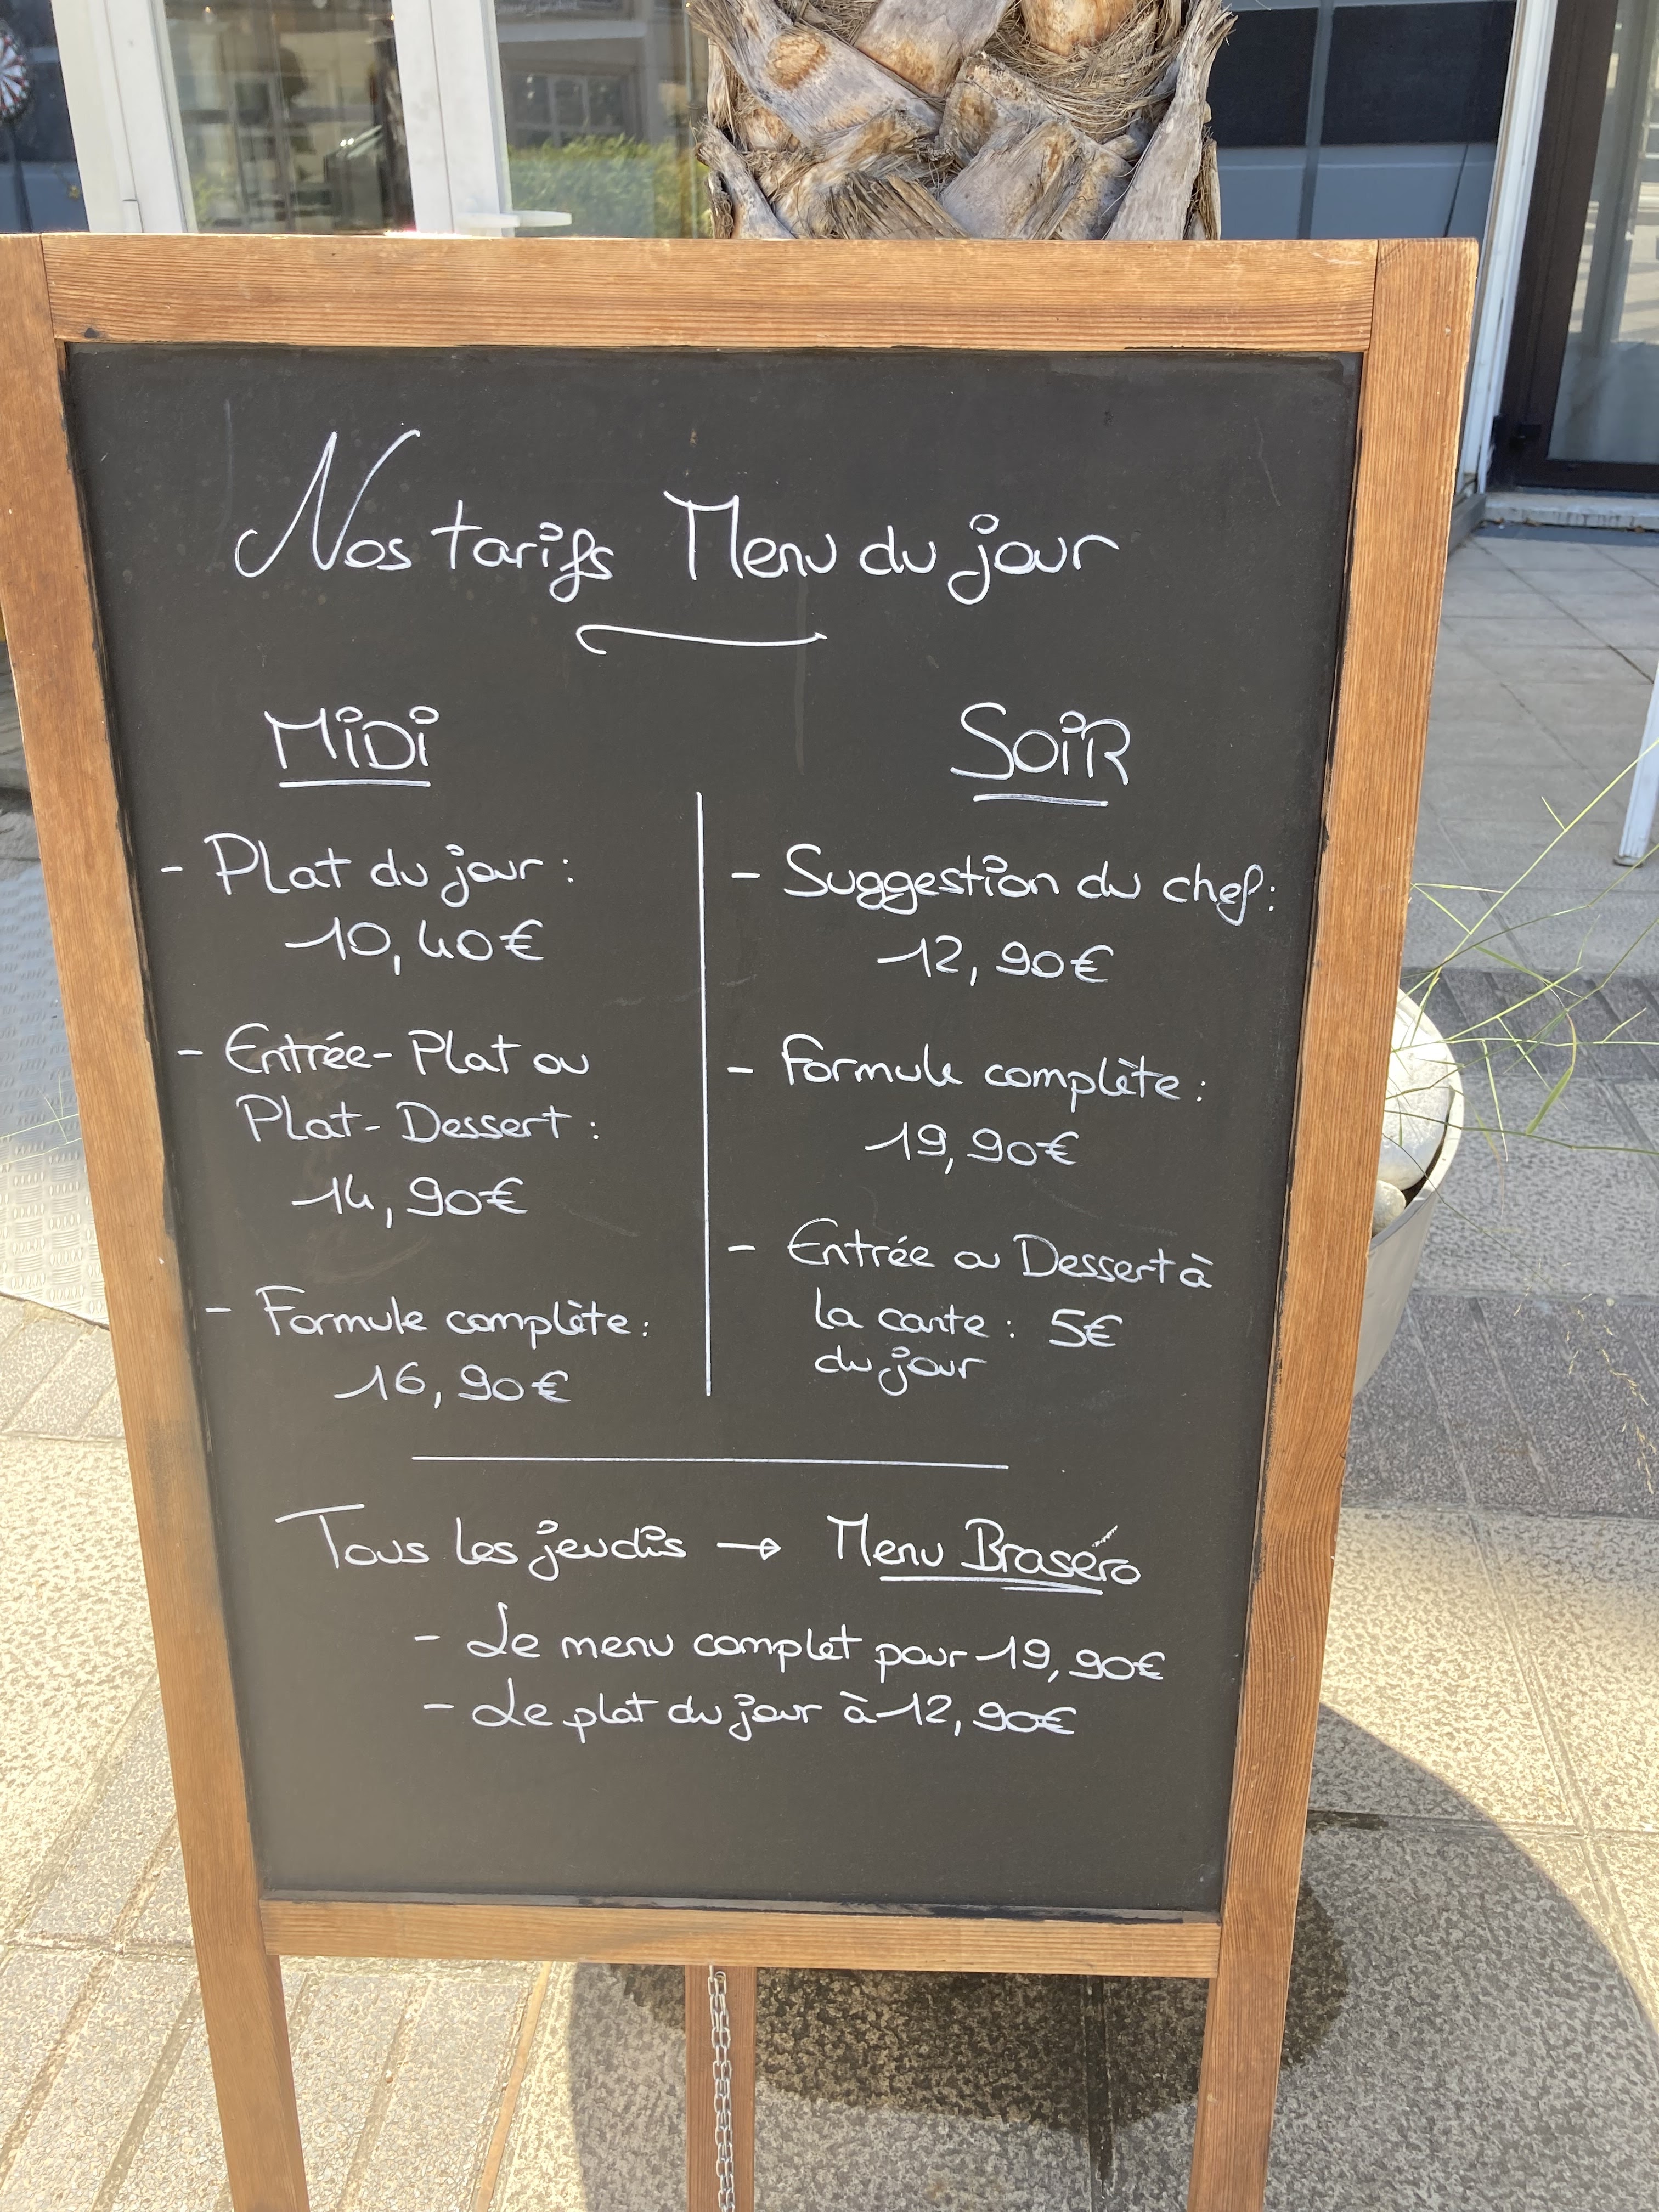 Nos tarifs Menu du jour
MiDi
- Plat du jour :
10,40€
- Entrée-Plat ou
Plat-Dessert :
14,90€
- Formule complète :
16,90€
SOiR
- Suggestion du chef :
12,90€
- Formule complète :
19,90€
- Entrée ou Dessert à
la carte : 5€
du jour
Tous les jeudis → Menu Braséro
- Le menu complet pour 19,90€
- Le plat du jour à 12,90€